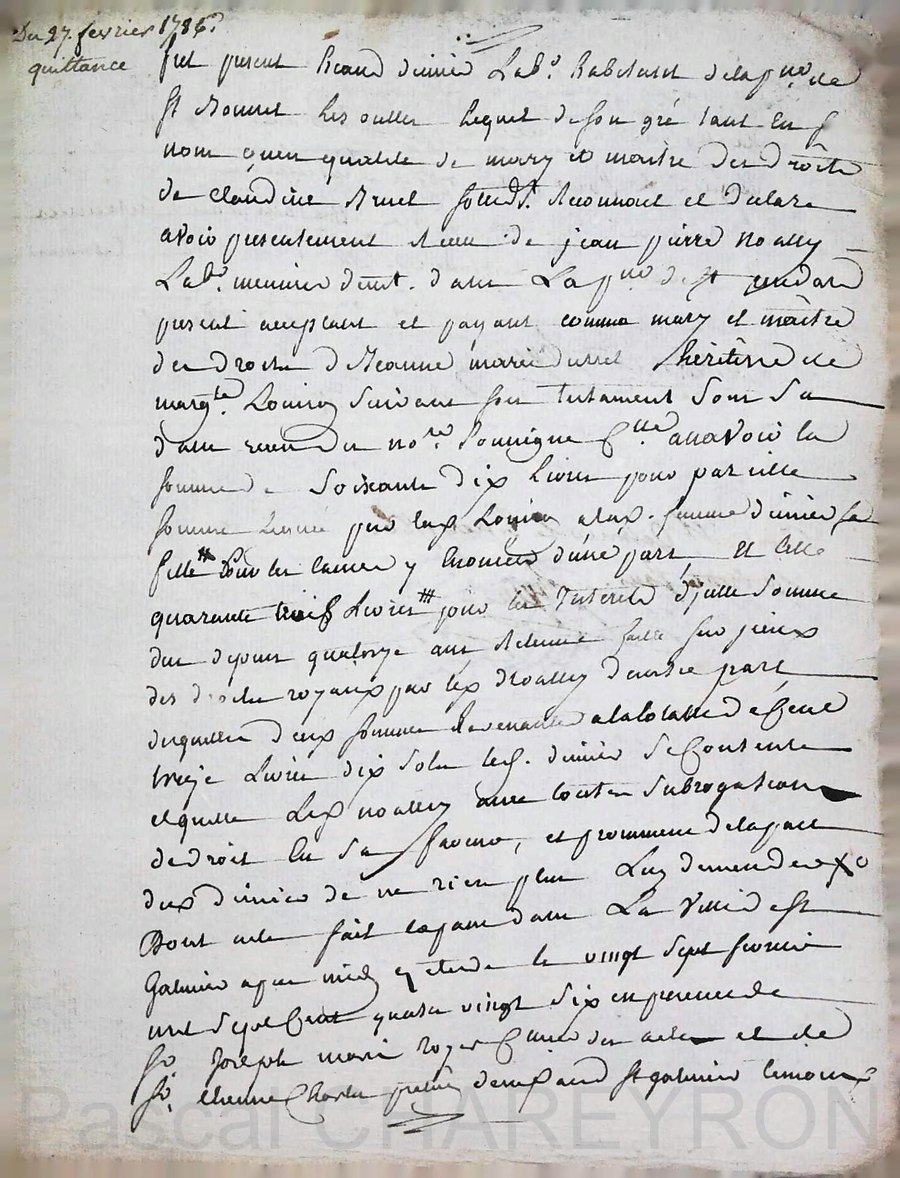 Du 27 février 1786
quittance
fut present denier Lab.r habitant de la p.sse de
St Bonnet les oulles lequel de son gré tant En s
nom qu'en qualité de mary et maitre des droits
de Claudine reconnoit et declare
avoir presentement receu de jean pierre noally
Lab.r dem.t dans La p.sse de st
present acceptant et payant comme mary et maître
des droits de Jeanne marie heritiere de
marg.te Louison suivant son testament sous sa
datte receu du no.re assavoir la
somme de soixante dix Livres pour pareille
somme leguée par lad Louison a lad. femme denier sa
fille pour les causes y Enoncées d'une part et celle
quarante trois Livres pour les Interets d'jcelle somme
dus depuis quatorze ans retenue faite
des droits royaux par led Noally d'autre part
desquelles deux sommes revenantes a la totalle de Cent
treize Livres dix sols led. denier se Contente
et quitte Led noally avec toutes subrogations
de droit En sa faveur, et promesse de la part
dud denier de ne rien plus Luy demander
Dont acte fait et passé dans La Ville de st
Galmier apres midy le vingt sept fevrier
mil sept Cent quatre vingt six en presence de
Sr. Joseph marie roger et de
Sr. etienne Charles st galmier temoins
Pascal CHAREYRON